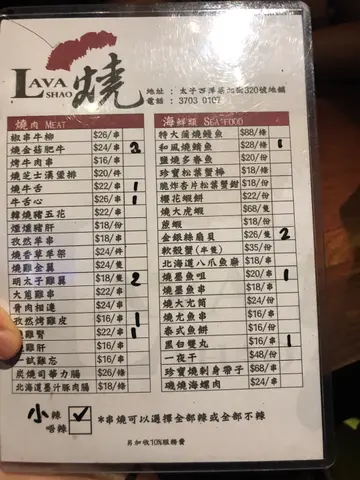 LAVA SHAO 燒
地址 : 太子西洋菜南街320號地舖
電話 : 3703 0107
燒肉 MEAT
椒串牛柳 $26/串
燒金菇肥牛 $24/串 2
烤牛肉串 $16/串
燒芝士漢堡排 $20/件
燒牛舌 $22/串 1
牛舌心 $26/串 1
韓燒豬五花 $22/串
煙爐豬肝 $18/份
孜然羊串 $18/串
燒香草羊架 $24/件
燒雞全翼 $18/隻
明太子雞翼 $18/隻 2
大蔥雞串 $22/串
骨肉相連 $24/串
孜然烤雞皮 $16/串 1
雞腎 $22/串 1
雞肝 $16/串
一試難忘 $16/串
炭燒司華力腸 $26/條
北海道墨汁豚肉腸 $18/條
海鮮類 SEAFOOD
特大蒲燒鰻魚 $88/條
和風燒鯖魚 $28/條 1
鹽燒多春魚 $20/份
珍寶松葉蟹棒 $18/條
脆炸杏片松葉蟹鉗 $18/份
櫻花蝦餅 $22/份
燒大虎蝦 $68/隻
籔蝦 $18/份
金銀絲扇貝 $26/隻 2
軟殼蟹(半隻) $35/份
北海道八爪魚 $18/串
燒墨魚咀 $20/串 1
燒墨魚串 $18/串
燒大冘筒 $24/份
燒尤魚串 $16/串
泰式魚餅 $16/份
黑白雙丸 $16/串 1
一夜干 $48/份
珍寶燒刺身帶子 $68/串
磯燒海螺肉 $24/串
小辣 ✓
唔辣
*串燒可以選擇全部辣或全部不辣
另加收10%服務費